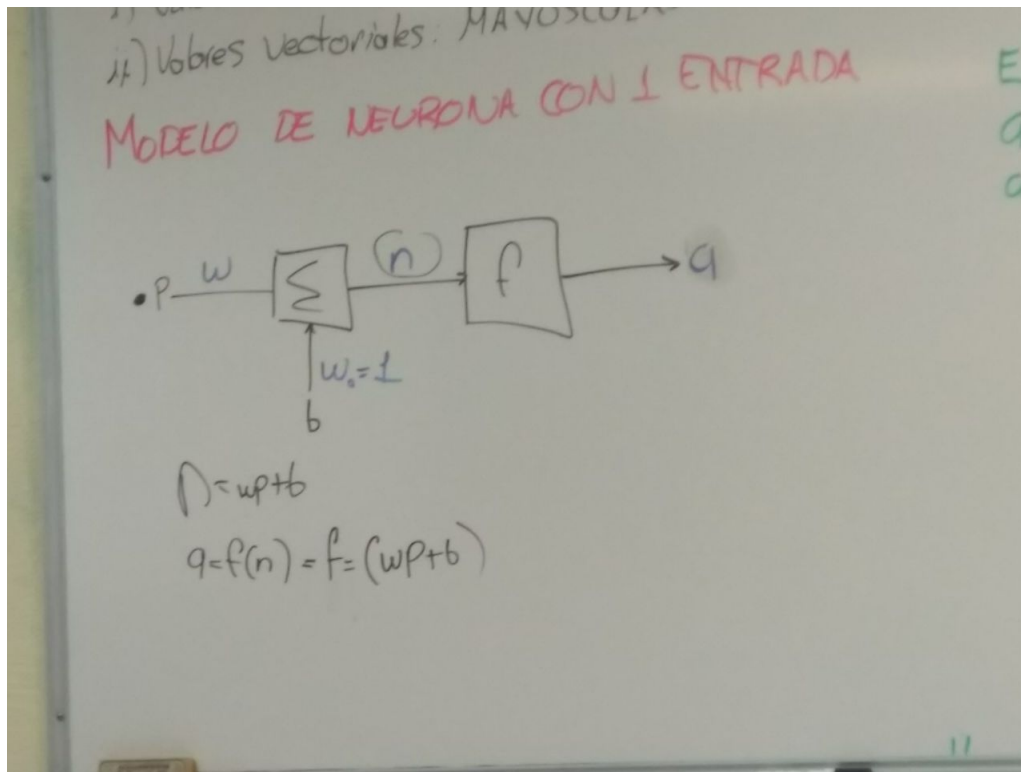 ii) Valores vectoriales: MAYÚSCULAS
MODELO DE NEURONA CON 1 ENTRADA
E
a
a
P w Σ n f a
w₀=1
b
n=wp+b
a=f(n)=f=(wp+b)
11